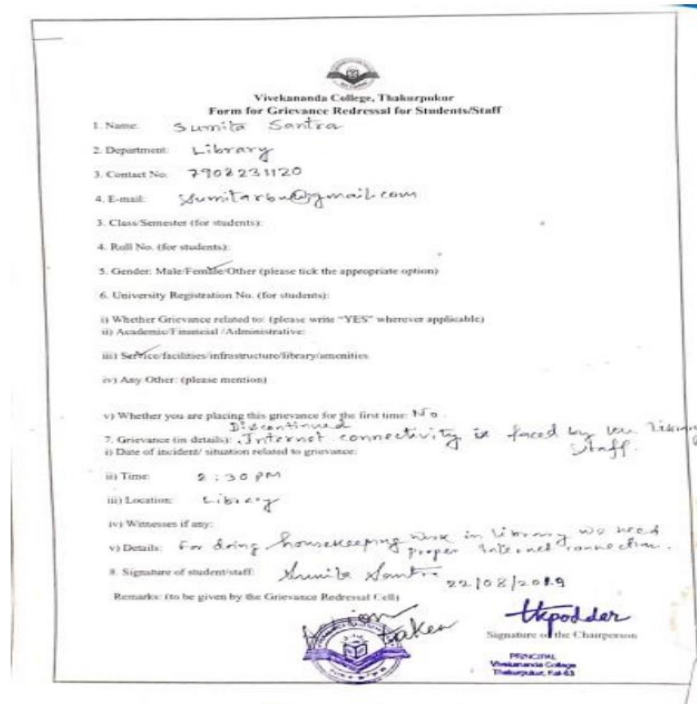 Vivekananda College, Thakurpukur
Form for Grievance Redressal for Students/Staff
1. Name: Sumita Santra
2. Department: Library
3. Contact No. 7908231120
4. E-mail: @gmail.com
3. Class/Semester (for students):
4. Roll No. (for students):
5. Gender: Male/Female/Other (please tick the appropriate option)
6. University Registration No. (for students):
i) Whether Grievance related to: (please write "YES" wherever applicable)
ii) Academic/Financial /Administrative:
iii) Service/facilities/infrastructure/library/amenities
iv) Any Other: (please mention)
v) Whether you are placing this grievance for the first time: No.
Discontinued
7. Grievance (in details): Internet connectivity is faced by Library
Staff.
i) Date of incident/ situation related to grievance:
ii) Time: 2:30 PM
iii) Location: Library
iv) Witnesses if any:
v) Details: For doing housekeeping work in Library we need
proper Internet connection.
8. Signature of student/staff: Sumita Santra
22/08/2019
Remarks: (to be given by the Grievance Redressal Cell)
Action
taken
tkpodder
Signature of the Chairperson
PRINCIPAL
Vivekananda College
Thakurpukur, Kol-63